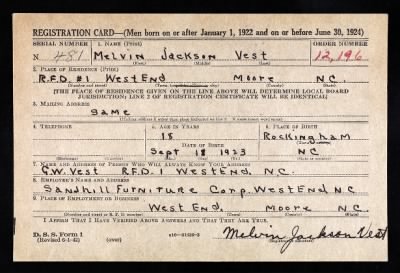 REGISTRATION CARD—(Men born on or after January 1, 1922 and on or before June 30, 1924)
SERIAL NUMBER 1. NAME (Print) ORDER NUMBER
N 481 Melvin Jackson Vest 12,196
(First) (Middle) (Last)
2. PLACE OF RESIDENCE (Print)
R.F.D. #1 West End Moore N.C.
(Number and street) (Town, township, village, or city) (County) (State)
[THE PLACE OF RESIDENCE GIVEN ON THE LINE ABOVE WILL DETERMINE LOCAL BOARD
JURISDICTION; LINE 2 OF REGISTRATION CERTIFICATE WILL BE IDENTICAL]
3. MAILING ADDRESS
Same
4. TELEPHONE 5. AGE IN YEARS 6. PLACE OF BIRTH
18 Rockingham
DATE OF BIRTH
Sept 18 1923 NC
7. NAME AND ADDRESS OF PERSON WHO WILL ALWAYS KNOW YOUR ADDRESS
G.W. Vest R.F.D. 1 West End, N.C.
8. EMPLOYER'S NAME AND ADDRESS
Sandhill Furniture Corp. West End NC
9. PLACE OF EMPLOYMENT OR BUSINESS
West End, Moore N.C.
(Number and street or R. F. D. number) (Town) (County) (State)
I AFFIRM THAT I HAVE VERIFIED ABOVE ANSWERS AND THAT THEY ARE TRUE.
D. S. S. Form 1
(Revised 6-1-42) (over) Melvin Jackson Vest